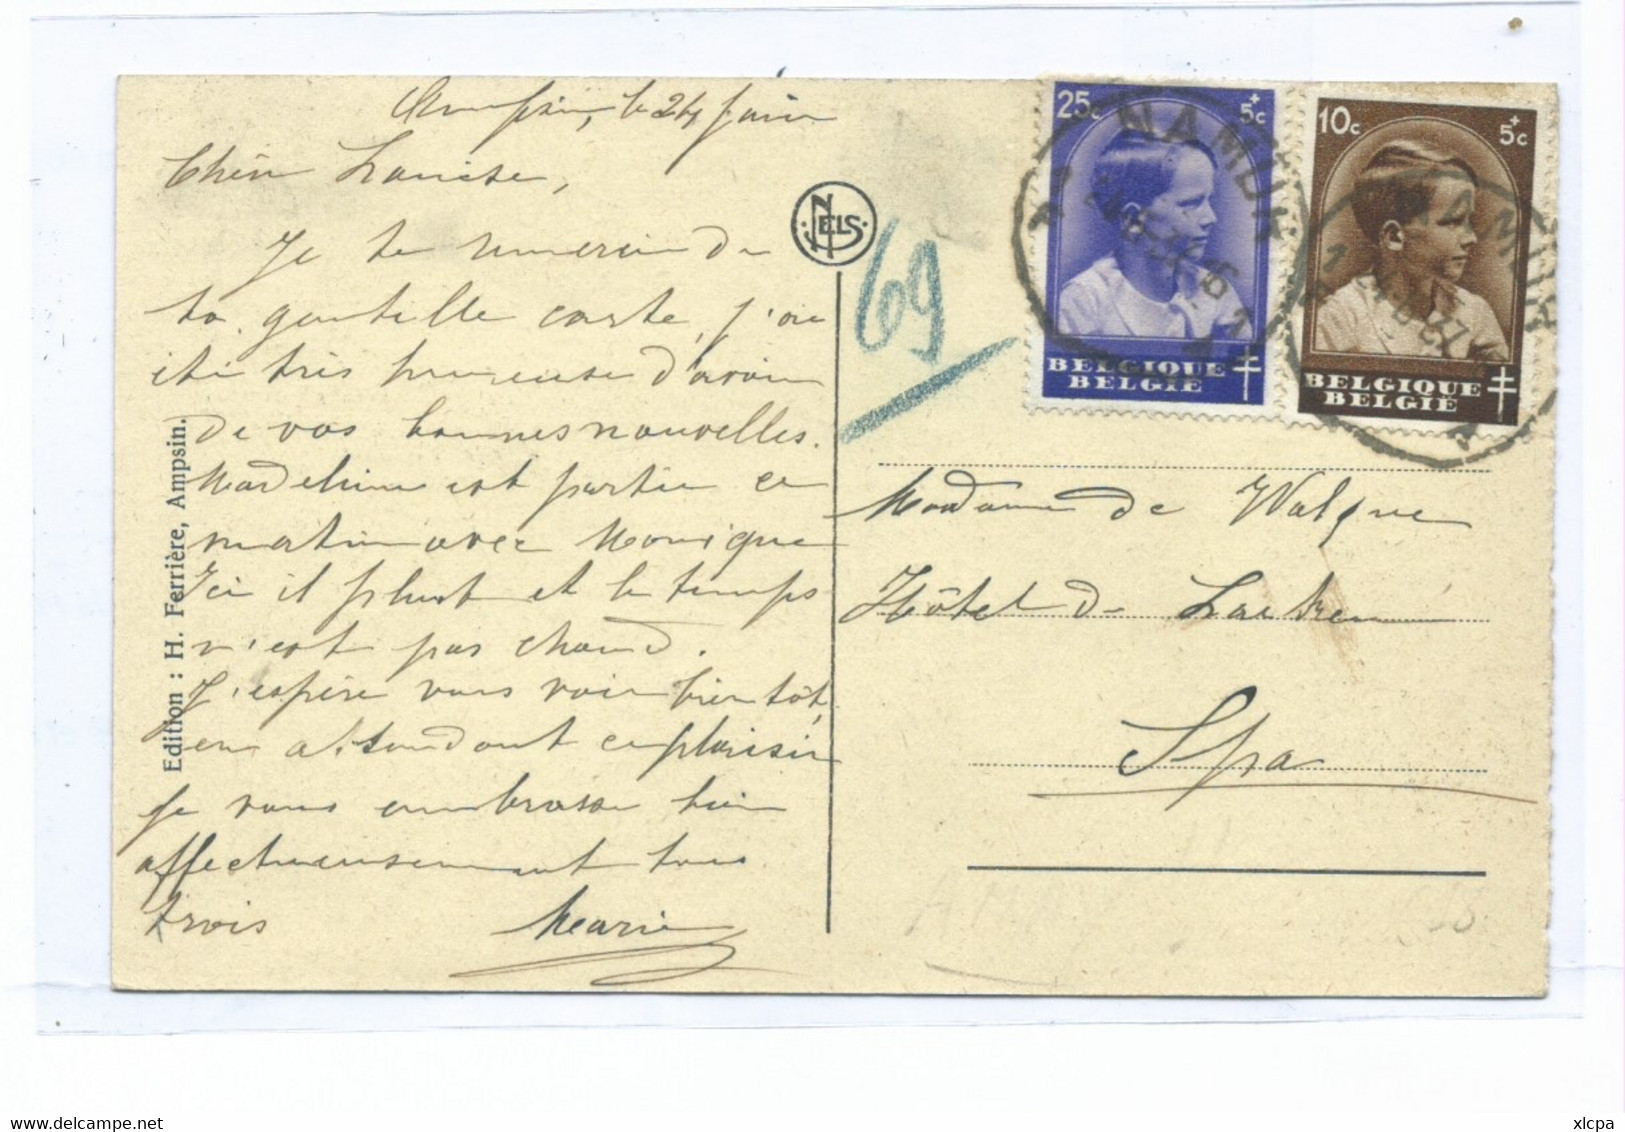 Ampsin, le 24 juin
Chère Francine,
Je te remercie de
ta gentille carte, j'ai
été très heureuse d'avoir
de vos bonnes nouvelles.
Madeleine est partie ce
matin avec Monique
Ici il pleut et le temps
n'est pas chaud.
J'espère vous voir bientôt,
en attendant ce plaisir
je vous embrasse bien
affectueusement tous
trois Marie
Edition : H. Ferrière, Ampsin.
NELS
69
25c +5c
BELGIQUE
BELGIË
10c +5c
BELGIQUE
BELGIË
NAMUR
NAMUR
Madame de Walque
Hôtel de Laeken
Spa
https://www.delcampe.net
xlcpa